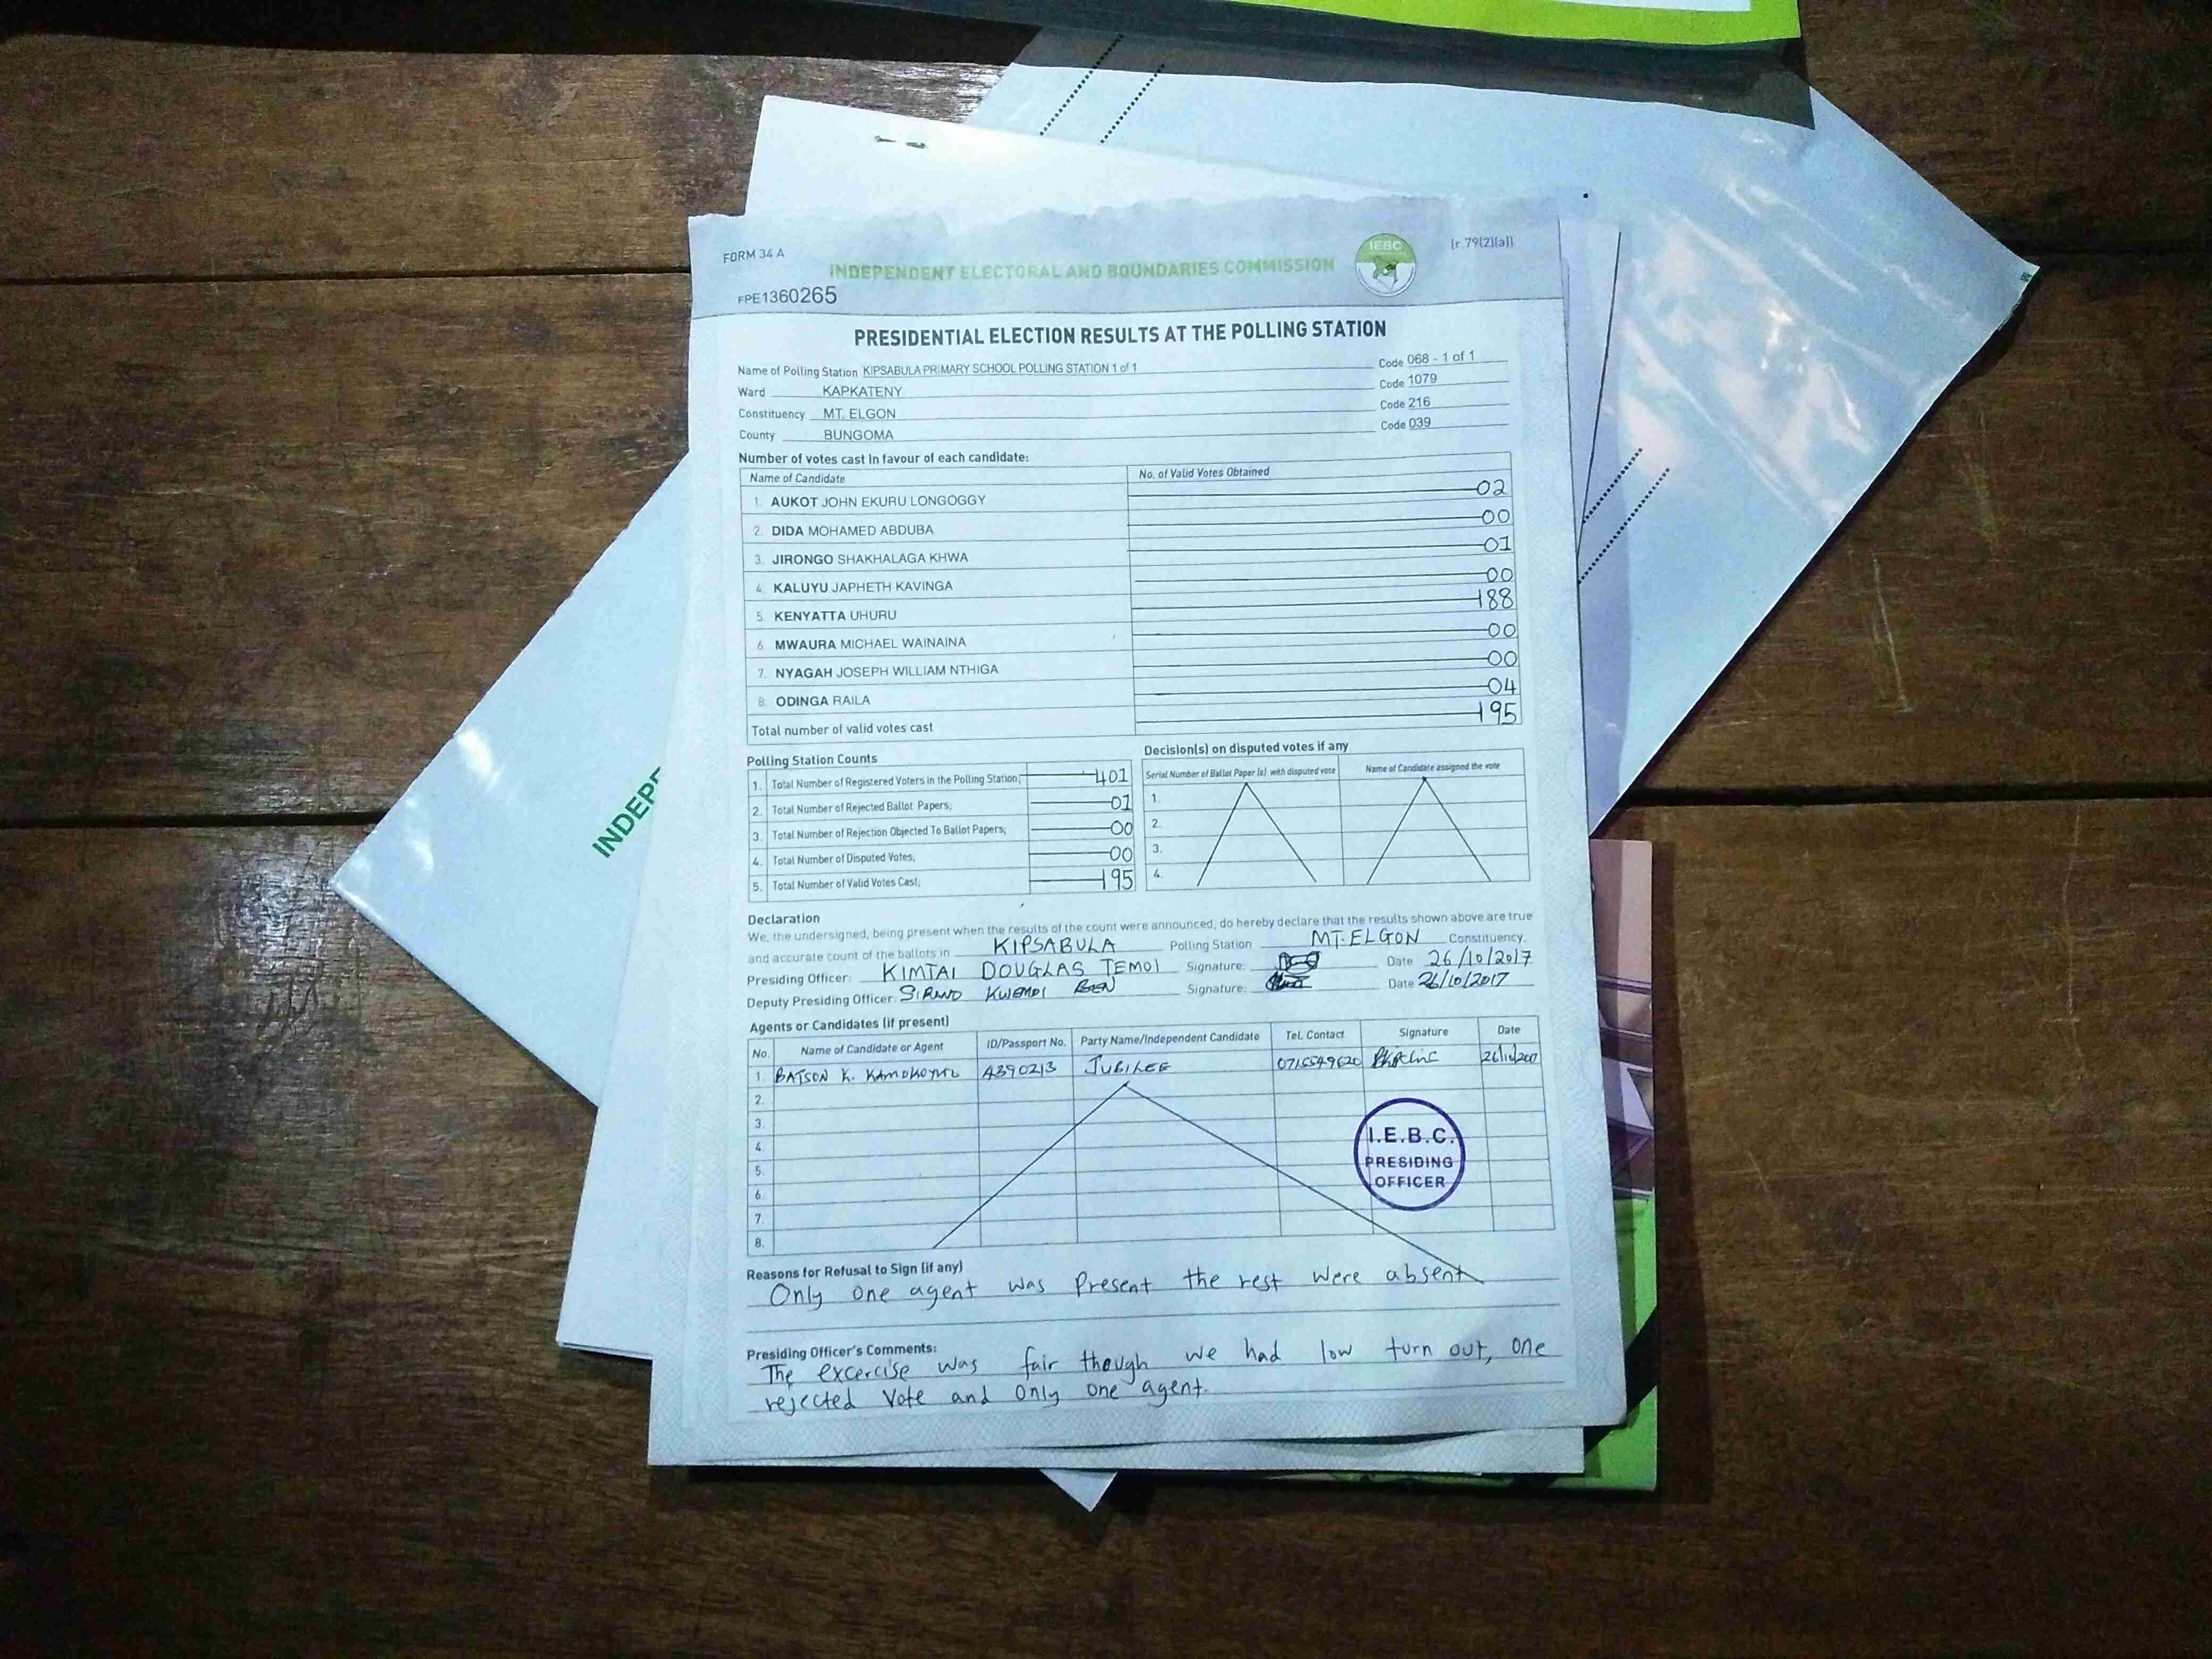 FORM 34 A
[r.79(2)(a)]
IEBC
INDEPENDENT ELECTORAL AND BOUNDARIES COMMISSION
FPE1360265
PRESIDENTIAL ELECTION RESULTS AT THE POLLING STATION
Name of Polling Station KIPSABULA PRIMARY SCHOOL POLLING STATION 1 of 1 Code 068 - 1 of 1
Ward KAPKATENY Code 1079
Constituency MT. ELGON Code 216
County BUNGOMA Code 039
Number of votes cast in favour of each candidate:
Name of Candidate No. of Valid Votes Obtained
1. AUKOT JOHN EKURU LONGOGGY 02
2. DIDA MOHAMED ABDUBA 00
3. JIRONGO SHAKHALAGA KHWA 01
4. KALUYU JAPHETH KAVINGA 00
5. KENYATTA UHURU 188
6. MWAURA MICHAEL WAINAINA 00
7. NYAGAH JOSEPH WILLIAM NTHIGA 00
8. ODINGA RAILA 04
Total number of valid votes cast 195
Polling Station Counts
1. Total Number of Registered Voters in the Polling Station; 401
2. Total Number of Rejected Ballot Papers; 01
3. Total Number of Rejection Objected To Ballot Papers; 00
4. Total Number of Disputed Votes; 00
5. Total Number of Valid Votes Cast; 195
Decision(s) on disputed votes if any
Serial Number of Ballot Paper (s) with disputed vote Name of Candidate assigned the vote
1.
2.
3.
4.
Declaration
We, the undersigned, being present when the results of the count were announced, do hereby declare that the results shown above are true
and accurate count of the ballots in KIPSABULA Polling Station MT. ELGON Constituency.
Presiding Officer: KIMTAI DOUGLAS TEMOI Signature: Date 26/10/2017
Deputy Presiding Officer: KWEMOI BEN Signature: Date 26/10/2017
Agents or Candidates (if present)
No. Name of Candidate or Agent ID/Passport No. Party Name/Independent Candidate Tel. Contact Signature Date
1. BATSON K. 4390213 JUBILEE 26/10/2017
2.
3.
4.
5.
6.
7.
8.
I.E.B.C.
PRESIDING
OFFICER
Reasons for Refusal to Sign (if any)
Only one agent was Present the rest were absent
Presiding Officer's Comments:
The excercise was fair though we had low turn out, one
rejected Vote and Only one agent.
INDEPE